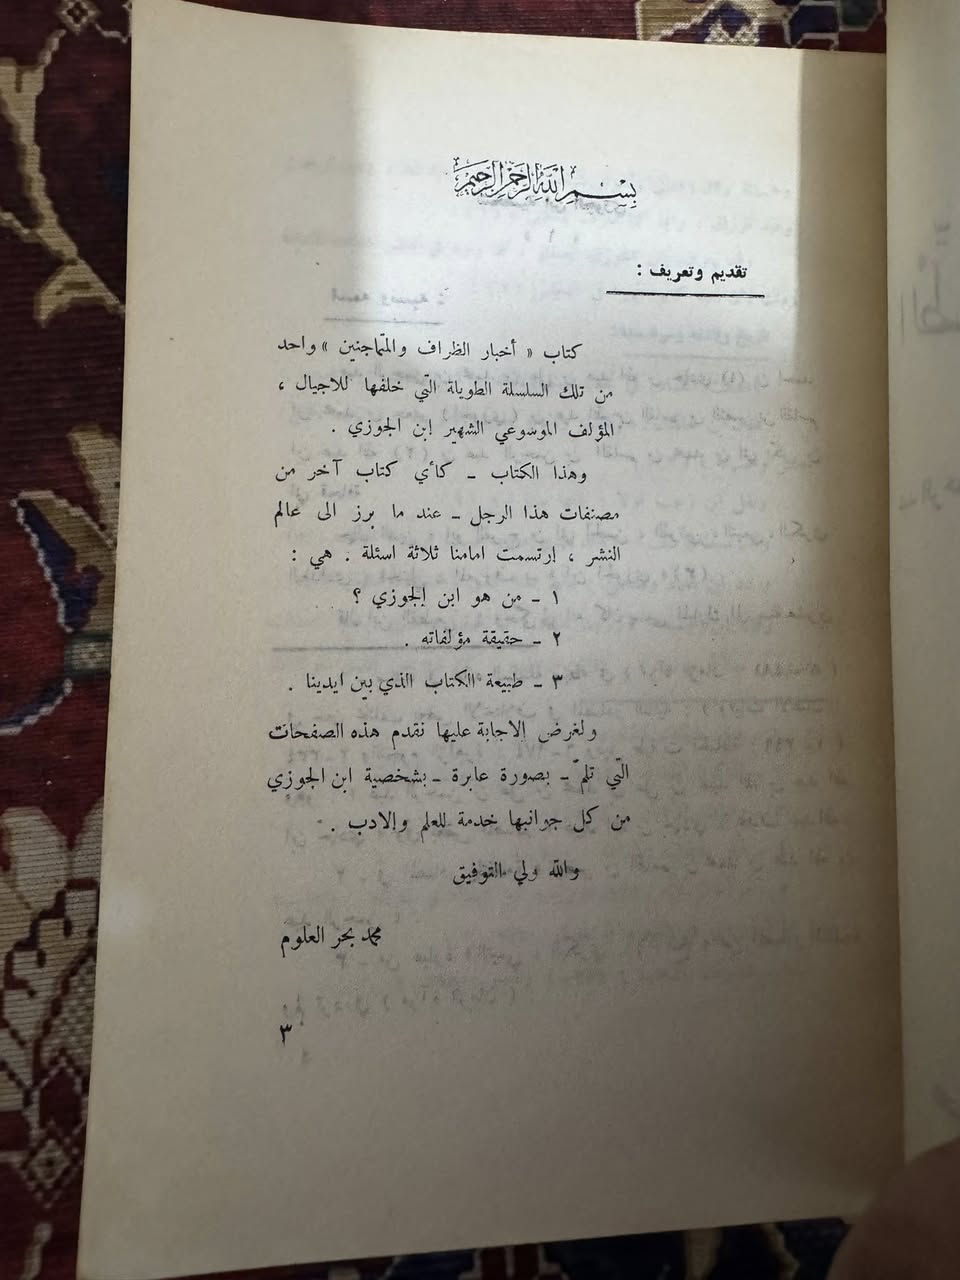 بسم الله الرحمن الرحيم
تقديم وتعريف :
كتاب « أخبار الظراف والمتماجنين » واحد
من تلك السلسلة الطويلة التي خلفها للاجيال ،
المؤلف الموسوعي الشهير إبن الجوزي .
وهذا الكتاب ـ كأي كتاب آخر من
مصنفات هذا الرجل ـ عند ما برز الى عالم
النشر ، إرتسمت امامنا ثلاثة اسئلة . هي :
١ ـ من هو ابن الجوزي ؟
٢ ـ حقيقة مؤلفاته .
٣ ـ طبيعة الكتاب الذي بين ايدينا .
ولغرض الاجابة عليها نقدم هذه الصفحات
التي تلمّ ـ بصورة عابرة ـ بشخصية ابن الجوزي
من كل جوانبها خدمة للعلم والادب .
والله ولي التوفيق
محمد بحر العلوم
٣